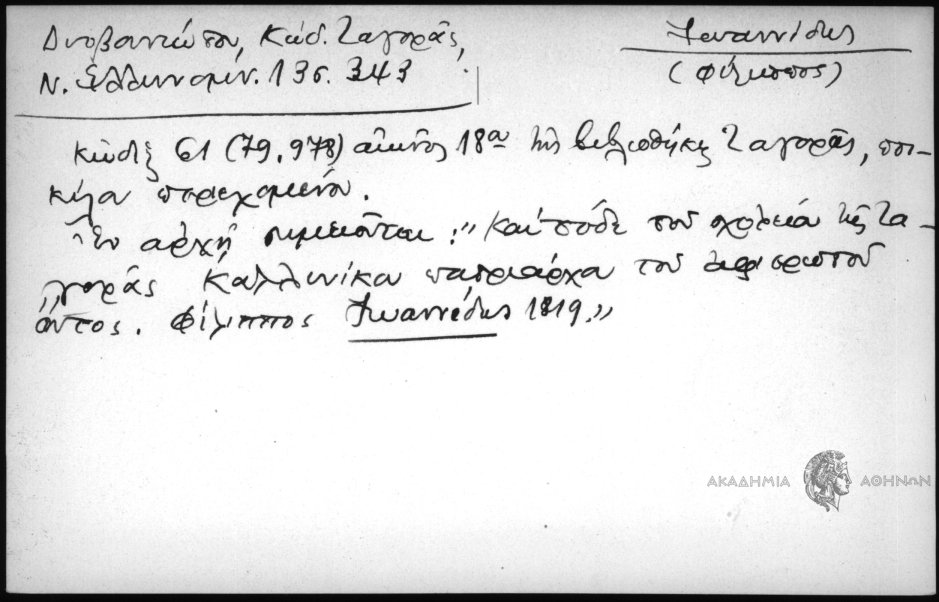 Δυοβουνιώτου, Κώδ. Ζαγορᾶς,
Ν. Ἑλληνομν. 13ς. 343
Ἰωαννίδης
(Φίλιππος)
Κώδιξ 61 (79, 978) αἰῶνος 18ου τῆς βιβλιοθήκης Ζαγορᾶς, ποι-
κίλα περιεχομένου.
Ἐν ἀρχῇ σημειοῦται: "Καὶ τόδε τοῦ σχολείου τῆς Ζα-
"γορᾶς Καλλινίκου πατριάρχου τοῦ ἀφιερωτοῦ
ὄντος. Φίλιππος Ἰωαννίδης 1819."
ΑΚΑΔΗΜΙΑ ΑΘΗΝΩΝ